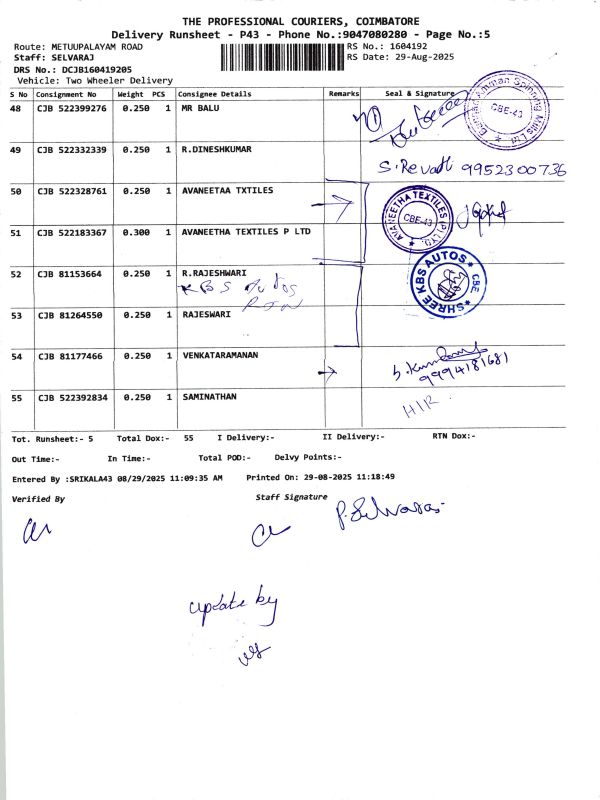 THE PROFESSIONAL COURIERS, COIMBATORE
Delivery Runsheet - P43 - Phone No.:9047080280 - Page No.:5
Route: METUUPALAYAM ROAD RS No.: 1604192
Staff: SELVARAJ RS Date: 29-Aug-2025
DRS No.: DCJB160419205
Vehicle: Two Wheeler Delivery
S No Consignment No Weight PCS Consignee Details Remarks Seal & Signature
48 CJB 522399276 0.250 1 MR BALU
CBE-43
49 CJB 522332339 0.250 1 R.DINESHKUMAR
S.Revathi 9952300736
50 CJB 522328761 0.250 1 AVANEETAA TXTILES
AVANEETHA TEXTILES (P) LTD. CBE-43
51 CJB 522183367 0.300 1 AVANEETAA TEXTILES P LTD
52 CJB 81153664 0.250 1 R.RAJESHWARI
KBS Autos
SHREE KBS AUTOS CBE
53 CJB 81264550 0.250 1 RAJESWARI
54 CJB 81177466 0.250 1 VENKATARAMANAN
9994181681
55 CJB 522392834 0.250 1 SAMINATHAN
Tot. Runsheet:- 5 Total Dox:- 55 I Delivery:- II Delivery:- RTN Dox:-
Out Time:- In Time:- Total POD:- Delvy Points:-
Entered By :SRIKALA43 08/29/2025 11:09:35 AM Printed On: 29-08-2025 11:18:49
Verified By Staff Signature
P.Selvaraj
update by